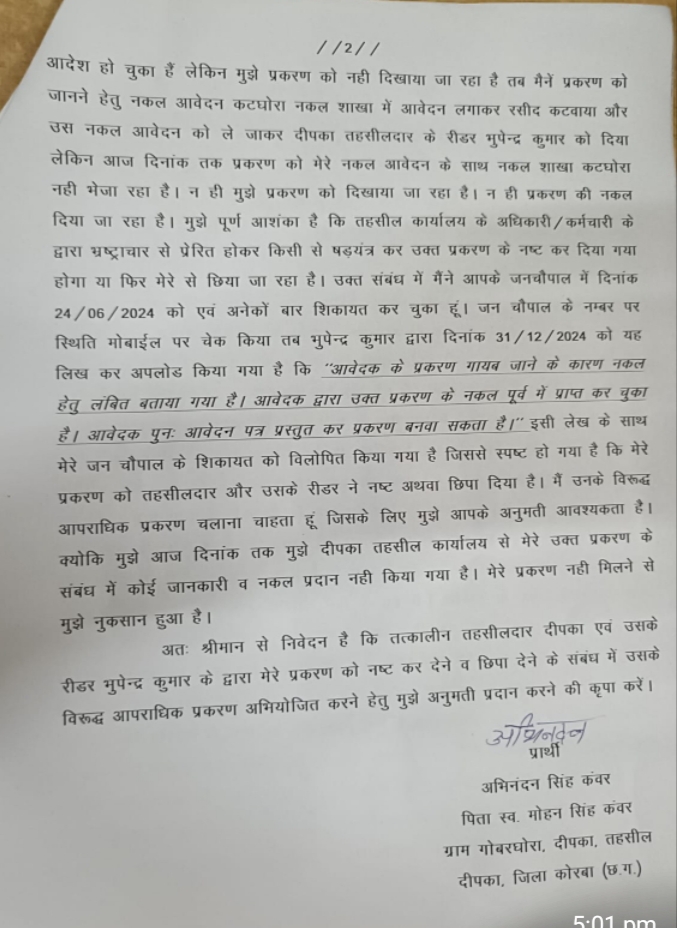 //2//
आदेश हो चुका हैं लेकिन मुझे प्रकरण को नही दिखाया जा रहा है तब मैनें प्रकरण को
जानने हेतु नकल आवेदन कटघोरा नकल शाखा में आवेदन लगाकर रसीद कटवाया और
उस नकल आवेदन को ले जाकर दीपका तहसीलदार के रीडर भुपेन्द्र कुमार को दिया
लेकिन आज दिनांक तक प्रकरण को मेरे नकल आवेदन के साथ नकल शाखा कटघोरा
नही भेजा रहा है। न ही मुझे प्रकरण को दिखाया जा रहा है। न ही प्रकरण की नकल
दिया जा रहा है। मुझे पूर्ण आशंका है कि तहसील कार्यालय के अधिकारी/कर्मचारी के
द्वारा भ्रष्ट्राचार से प्रेरित होकर किसी से षड़यंत्र कर उक्त प्रकरण के नष्ट कर दिया गया
होगा या फिर मेरे से छिया जा रहा है। उक्त संबंध में मैंने आपके जनचौपाल में दिनांक
24/06/2024 को एवं अनेकों बार शिकायत कर चुका हूं। जन चौपाल के नम्बर पर
स्थिति मोबाईल पर चेक किया तब भुपेन्द्र कुमार द्वारा दिनांक 31/12/2024 को यह
लिख कर अपलोड किया गया है कि "आवेदक के प्रकरण गायब जाने के कारण नकल
हेतु लंबित बताया गया है। आवेदक द्वारा उक्त प्रकरण के नकल पूर्व में प्राप्त कर चुका
है। आवेदक पुनः आवेदन पत्र प्रस्तुत कर प्रकरण बनवा सकता है।" इसी लेख के साथ
मेरे जन चौपाल के शिकायत को विलोपित किया गया है जिससे स्पष्ट हो गया है कि मेरे
प्रकरण को तहसीलदार और उसके रीडर ने नष्ट अथवा छिपा दिया है। मैं उनके विरूद्ध
आपराधिक प्रकरण चलाना चाहता हूं जिसके लिए मुझे आपके अनुमती आवश्यकता है।
क्योकि मुझे आज दिनांक तक मुझे दीपका तहसील कार्यालय से मेरे उक्त प्रकरण के
संबंध में कोई जानकारी व नकल प्रदान नही किया गया है। मेरे प्रकरण नही मिलने से
मुझे नुकसान हुआ है।
अतः श्रीमान से निवेदन है कि तत्कालीन तहसीलदार दीपका एवं उसके
रीडर भुपेन्द्र कुमार के द्वारा मेरे प्रकरण को नष्ट कर देने व छिपा देने के संबंध में उसके
विरूद्ध आपराधिक प्रकरण अभियोजित करने हेतु मुझे अनुमती प्रदान करने की कृपा करें।
अभिनंदन
प्रार्थी
अभिनंदन सिंह कंवर
पिता स्व. मोहन सिंह कंवर
ग्राम गोबरघोरा, दीपका, तहसील
दीपका, जिला कोरबा (छ.ग.)
5:01 pm